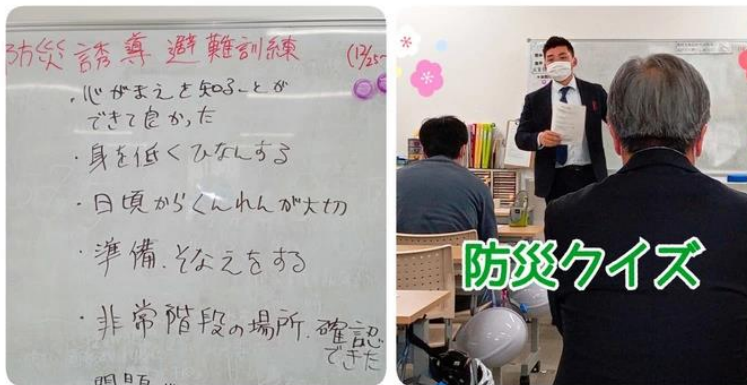 防災誘導避難訓練 (12/25~
・心がまえを知ることが
できて良かった
・身を低くひなんする
・日頃からくんれんが大切
・準備.そなえをする
・非常階段の場所.確認
できた
防災クイズ